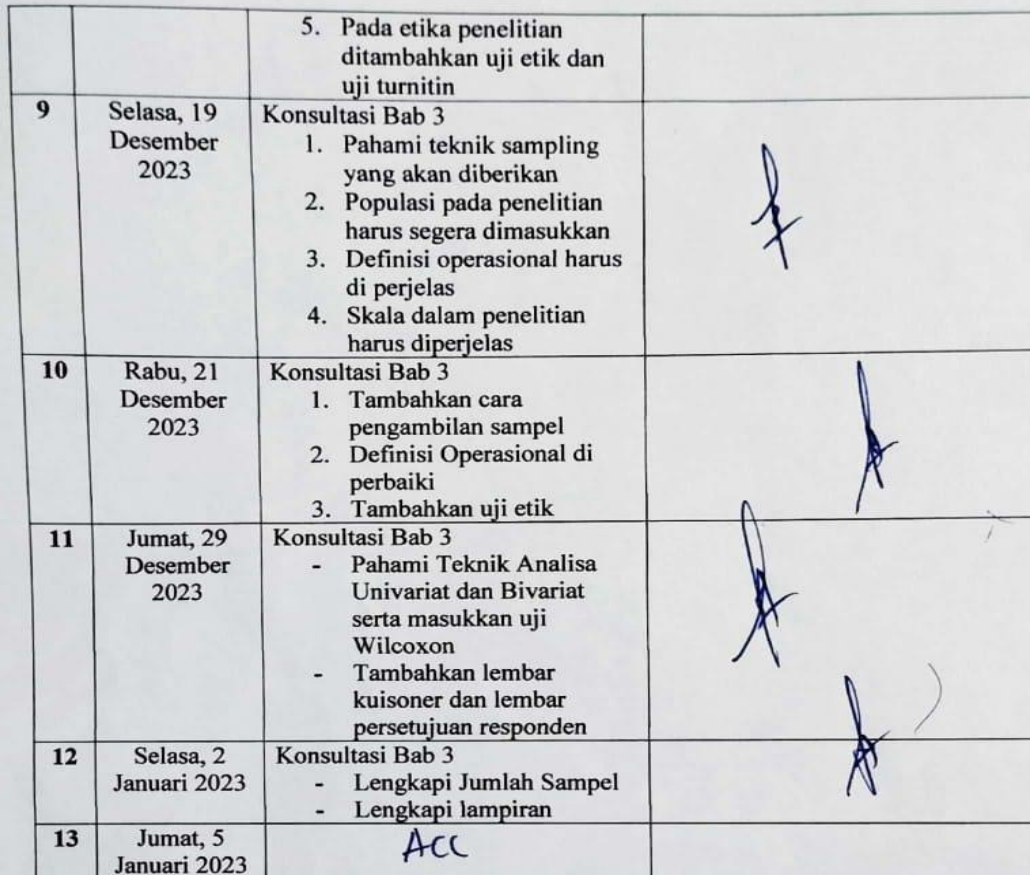 5. Pada etika penelitian
ditambahkan uji etik dan
uji turnitin
9
Selasa, 19
Desember
2023
Konsultasi Bab 3
1. Pahami teknik sampling
yang akan diberikan
2. Populasi pada penelitian
harus segera dimasukkan
3. Definisi operasional harus
di perjelas
4. Skala dalam penelitian
harus diperjelas
10
Rabu, 21
Desember
2023
Konsultasi Bab 3
1. Tambahkan cara
pengambilan sampel
2. Definisi Operasional di
perbaiki
3. Tambahkan uji etik
11
Jumat, 29
Desember
2023
Konsultasi Bab 3
- Pahami Teknik Analisa
Univariat dan Bivariat
serta masukkan uji
Wilcoxon
- Tambahkan lembar
kuisoner dan lembar
persetujuan responden
12
Selasa, 2
Januari 2023
Konsultasi Bab 3
- Lengkapi Jumlah Sampel
- Lengkapi lampiran
13
Jumat, 5
Januari 2023
ACC